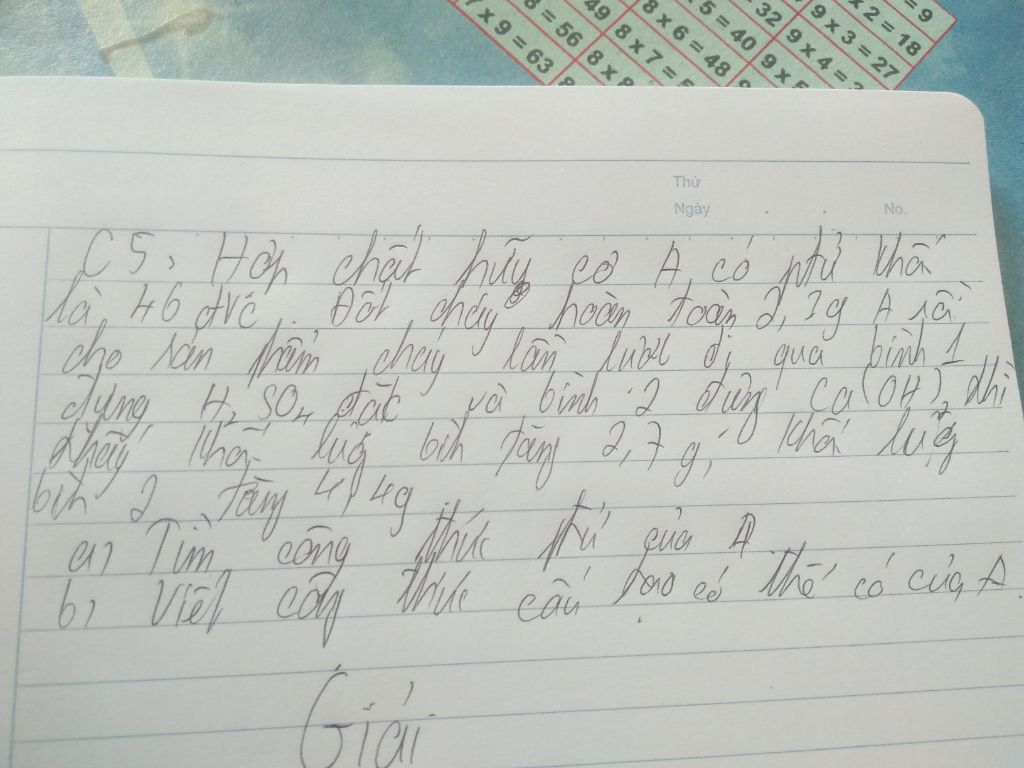 8 = 56
49
8 x 6 = 48
x 5 = 40
= 32
9 x 4 = 3
9 x 3 = 27
x 2 = 18
= 9
7 x 9 = 63
8 x 8
8 x 7 = 5
9 x 5
Thứ
Ngày . . No.
C5, Hợp chất hữu cơ A có ptử khố
là 46 đvc. Đốt cháy hoàn toàn 2,3g A rồi
cho sản phẩm cháy lần lượt đi qua bình 1
đựng H2SO4 đặc và bình 2 đựng Ca(OH)2 thì
thấy khố lượg bìh tăng 2,7g, khố lượg
bìh 2 tăng 4,4g
a, Tìm công thức ptử của A
b, Viết côg thức cấu tạo có thể có của A.
Giải